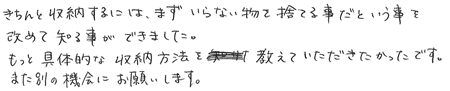 きちんと収納するには、まずいらない物を捨てる事だという事を
改めて知る事ができました。
もっと具体的な収納方法を教えていただきたかったです。
また別の機会にお願いします。